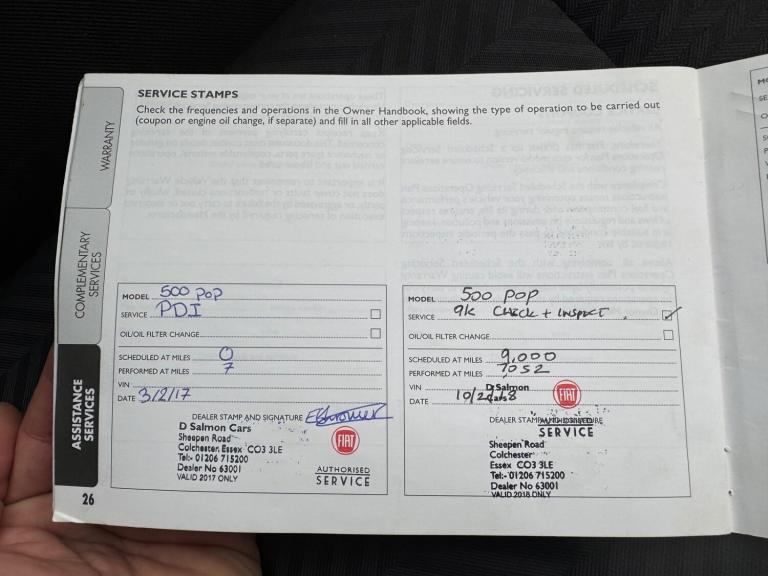 SERVICE STAMPS
Check the frequencies and operations in the Owner Handbook, showing the type of operation to be carried out
(coupon or engine oil change, if separate) and fill in all other applicable fields.
WARRANTY
COMPLEMENTARY
SERVICES
ASSISTANCE
SERVICES
MODEL 500 POP
SERVICE PDI
OIL/OIL FILTER CHANGE
SCHEDULED AT MILES 0
PERFORMED AT MILES 7
VIN
DATE 3/2/17
DEALER STAMP AND SIGNATURE
D Salmon Cars
Sheepen Road
Colchester, Essex CO3 3LE
Tel:- 01206 715200
Dealer No 63001
VALID 2017 ONLY
FIAT
AUTHORISED
SERVICE
MODEL 500 POP
SERVICE 9K CHECK + INSPECT
OIL/OIL FILTER CHANGE
SCHEDULED AT MILES 9,000
PERFORMED AT MILES 7052
VIN
D Salmon
Cars
DATE 10/2/18
FIAT
DEALER STAMP
SERVICE
Sheepen Road
Colchester
Essex CO3 3LE
Tel:- 01206 715200
Dealer No 63001
VALID 2018 ONLY
26